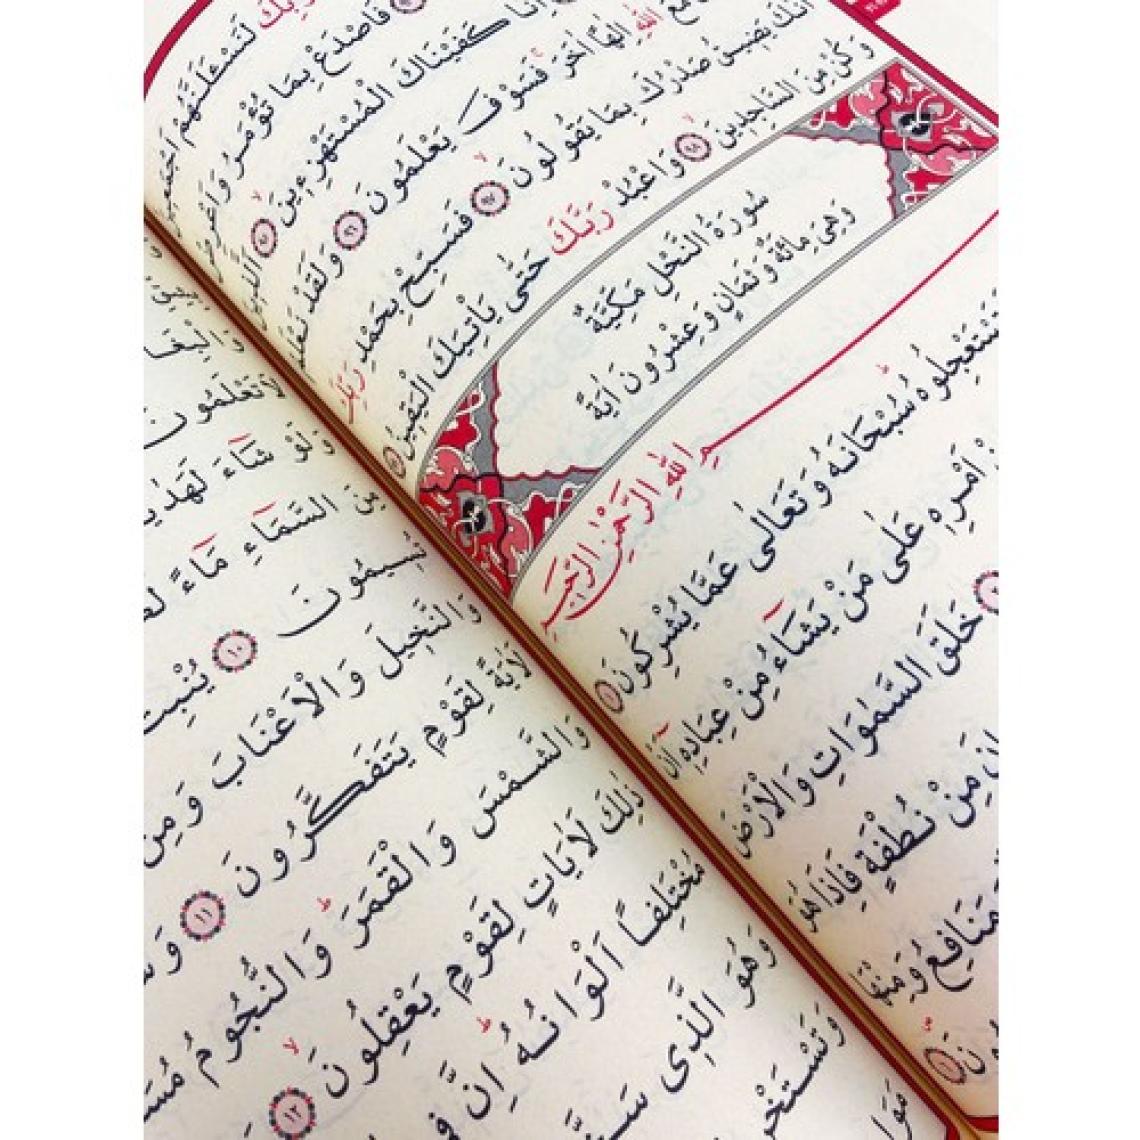 رَبِّكَ لَنَسْـَٔلَنَّهُمْ اَجْمَعٖينَ
فَاصْدَعْ بِمَا تُؤْمَرُ وَاَعْرِضْ
اِنَّا كَفَيْنَاكَ الْمُسْتَهْزِءٖينَ ﴿٩٥﴾ اَلَّذٖينَ
مَعَ اللّٰهِ اِلٰهًا اٰخَرَ فَسَوْفَ يَعْلَمُونَ ﴿٩٦﴾ وَلَقَدْ نَعْلَمُ
اَنَّكَ يَضٖيقُ صَدْرُكَ بِمَا يَقُولُونَ ﴿٩٧﴾ فَسَبِّحْ بِحَمْدِ رَبِّكَ
وَكُنْ مِنَ السَّاجِدٖينَ ﴿٩٨﴾ وَاعْبُدْ رَبَّكَ حَتّٰى يَأْتِيَكَ الْيَقٖينُ
سُورَةُ النَّحْلِ مَكِّيَّةٌ
وَهِيَ مِائَةٌ وَثَمَانٍ وَعِشْرُونَ اٰيَةً
بِسْمِ اللّٰهِ الرَّحْمٰنِ الرَّحٖيمِ
تَسْتَعْجِلُوهُ سُبْحَانَهُ وَتَعَالٰى عَمَّا يُشْرِكُونَ ﴿١﴾
اَمْرِهٖ عَلٰى مَنْ يَشَٓاءُ مِنْ عِبَادِهٖٓ اَنْ
خَلَقَ السَّمٰوَاتِ وَالْاَرْضَ
مِنْ نُطْفَةٍ فَاِذَا هُوَ
مَنَافِعُ وَمِنْهَا
لَا تَعْلَمُونَ
وَلَوْ شَٓاءَ لَهَدٰي
مِنَ السَّمَٓاءِ مَٓاءً
تُسٖيمُونَ ﴿١٠﴾ يُنْبِتُ
وَالنَّخٖيلَ وَالْاَعْنَابَ وَمِنْ
لَاٰيَةً لِقَوْمٍ يَتَفَكَّرُونَ ﴿١١﴾
وَالشَّمْسَ وَالْقَمَرَ وَالنُّجُومُ
ذٰلِكَ لَاٰيَاتٍ لِقَوْمٍ يَعْقِلُونَ ﴿١٢﴾
مُخْتَلِفًا اَلْوَانُهُ اِنَّ فٖي
وَهُوَ الَّذٖي